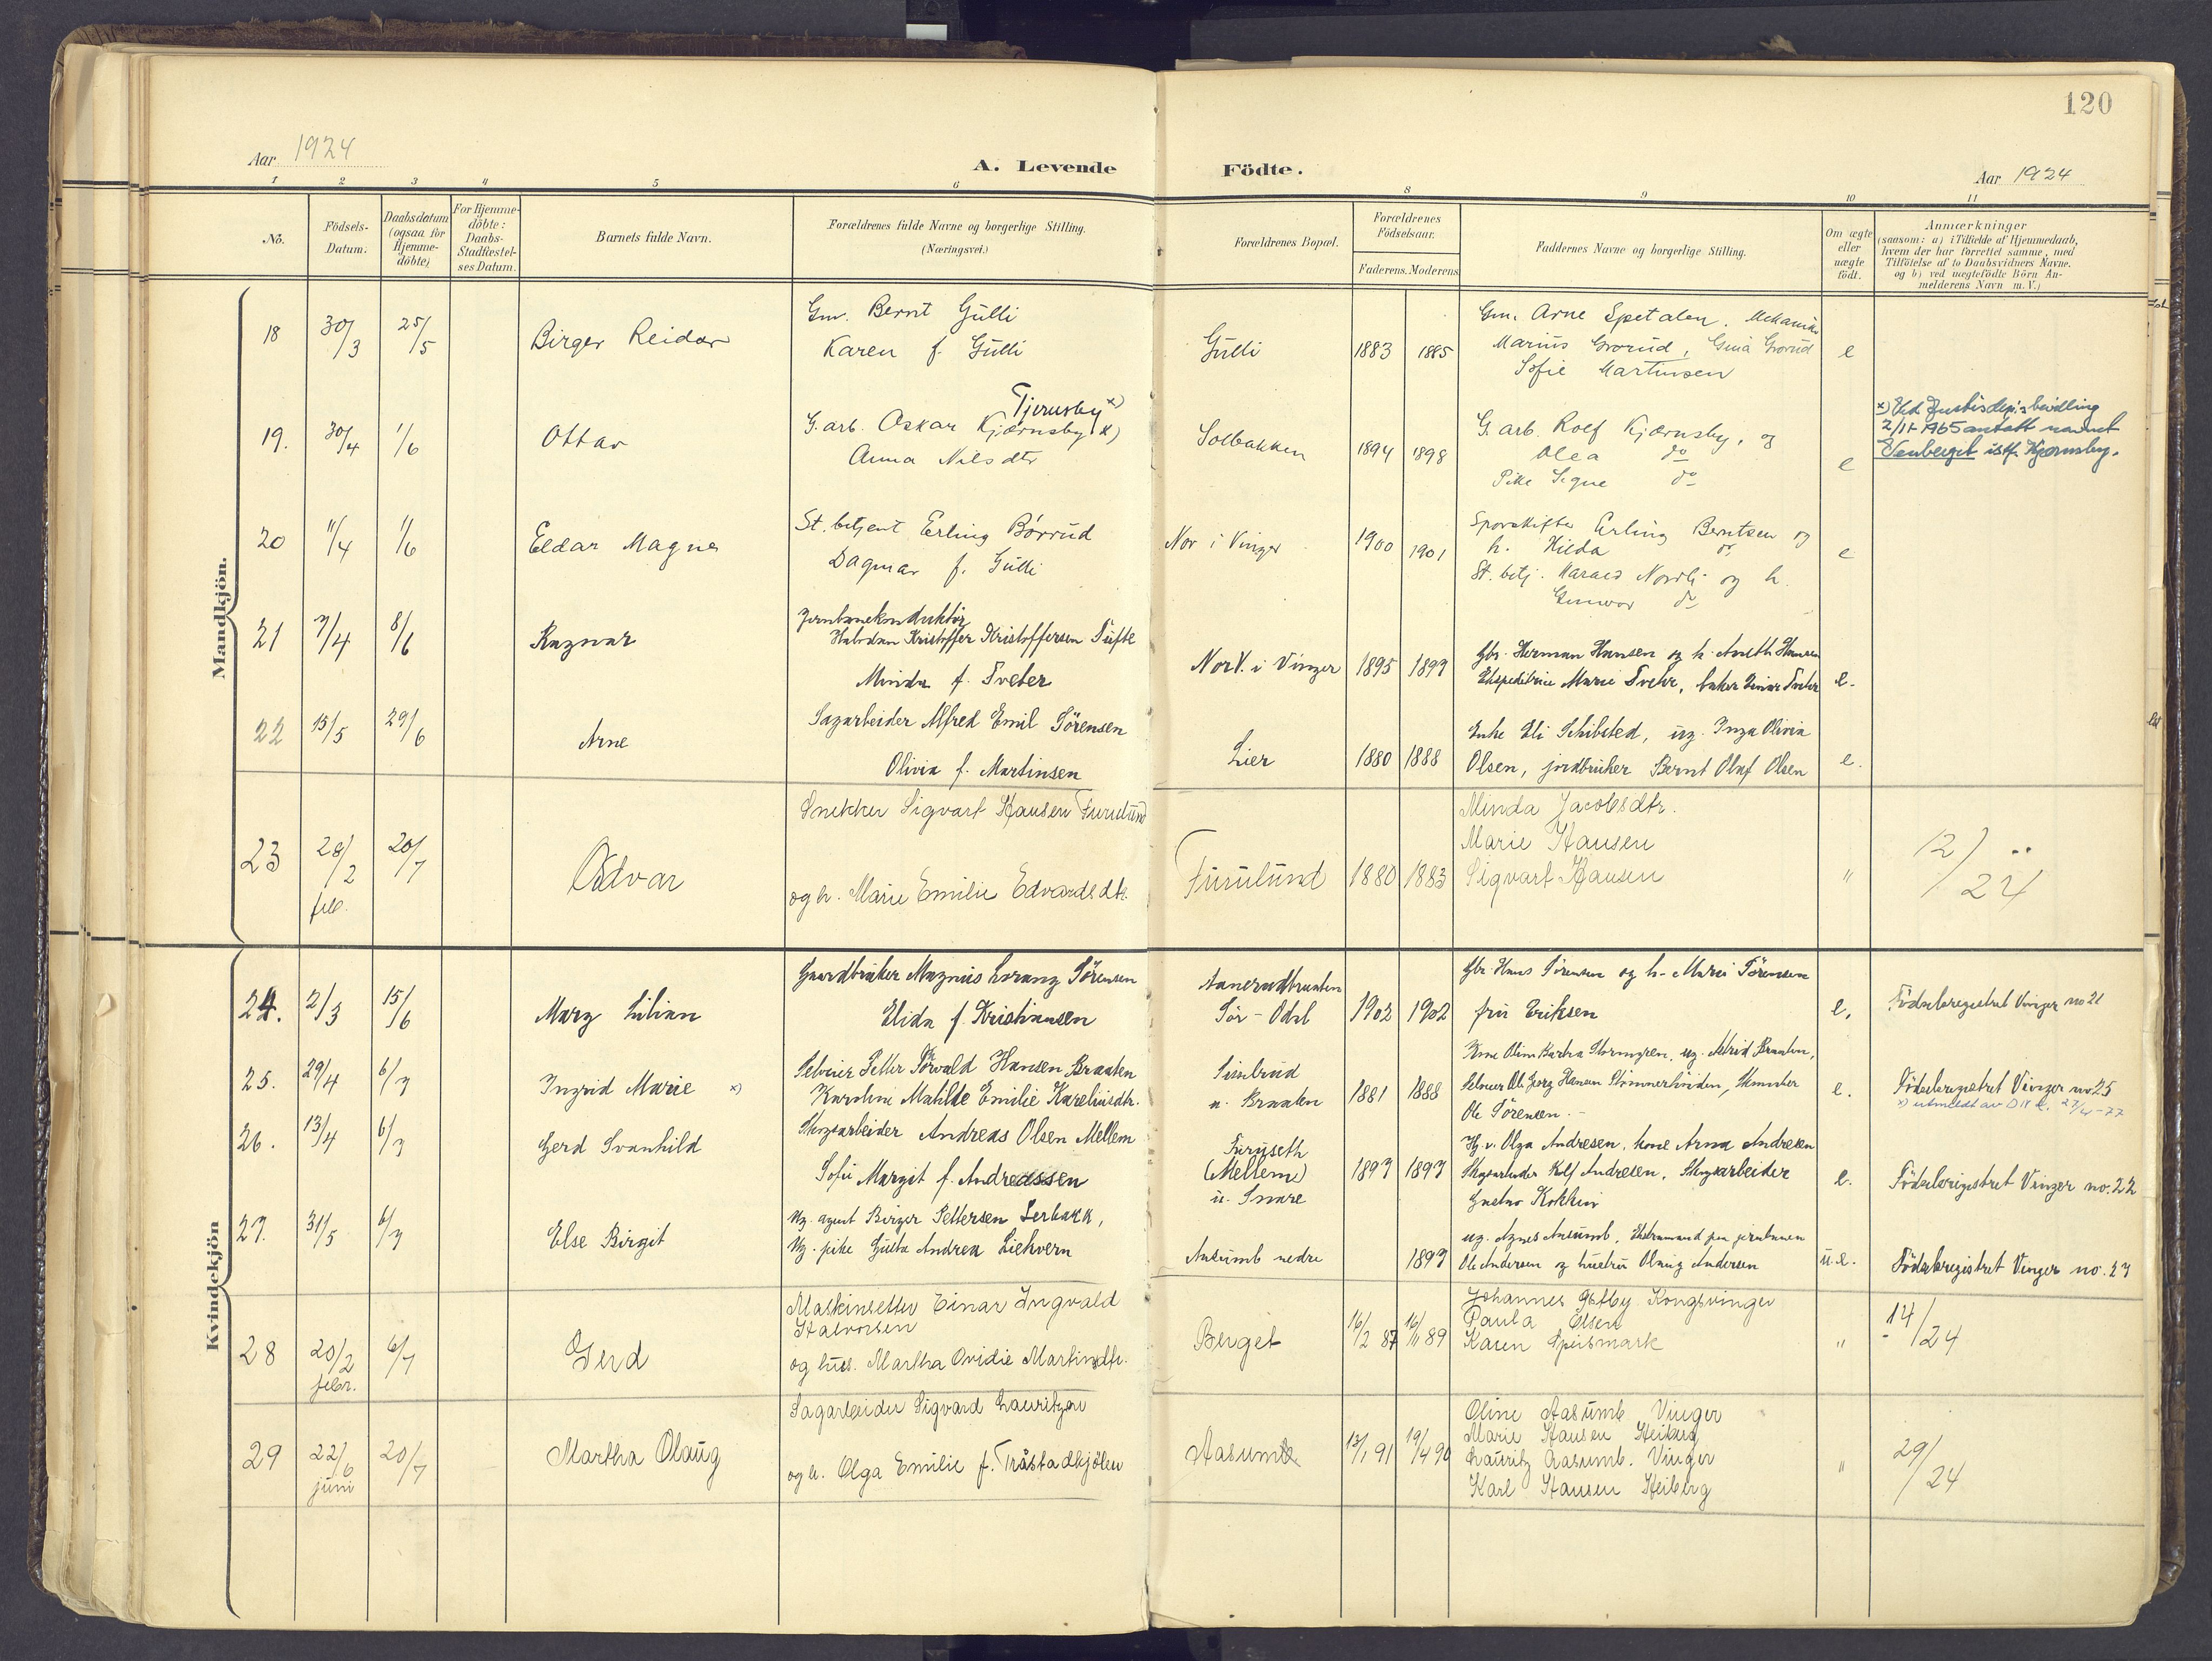 120
Aar 1924
A. Levende Födte.
Aar 1924
1 2 3 4 5 6 8 9 10 11
No.
Födsels-Datum.
Daabsdatum (ogsaa for Hjemme-döbte)
For Hjemme-döbte: Daabs-Stadfæstel-ses Datum.
Barnets fulde Navn.
Forældrenes fulde Navne og borgerlige Stilling.
(Næringsvei.)
Forældrenes Bopæl.
Forældrenes Födselsaar.
Faderens. Moderens.
Faddernes Navne og borgerlige Stilling.
Om ægte eller uægte födt.
Anmærkninger
(saasom: a) i Tilfælde af Hjemmedaab,
hvem der har forrettet samme, med
Tilföielse af to Daabsvidners Navne.
og b) ved uægtefödte Börn An-
melderens Navn m. V.)
Mandkjön.
18 30/3 25/5 Birger Reidar
Gm. Bernt Gulli
Karen f. Gulli
Gulli 1883 1885
Gm. Arne Spetalen. Mekanik
Marius Grorud, Gina Grorud
Sofie Martinsen
e
19. 30/4 1/6 Ottar
Tjernsby x)
G. arb. Oskar Kjærnsby x)
Anna Nilsdtr
Solbakken 1894 1898
G. arb. Rolf Kjærnsby, og
Olea do
Pike Signe do
e
x) Ved Justisdep's bevilling
2/11 1965 antatt navnet
Venberget istf. Kjærnsby.
20 11/4 1/6 Eldar Magne
St. betjent Erling Børrud
Dagmar f. Gulli
Nor i Vinger 1900 1901
Sporskifter Erling Berntsen og
h. Hilda do
St. betj. Harald Nordli og h.
Gunvor do
e
21 7/4 8/6 Ragnar
Jernbanekonduktør
Halvdan Kristoffer Kristoffersen Tufte
Minda f. Tveter
Nor V. i Vinger 1895 1899
Gbr. Herman Hansen og h. Aneth Hansen
Ekspeditrice Marie Tveter, baker Einar Tveter
e.
22 15/5 29/6 Arne
Sagarbeider Alfred Emil Sörensen
Olivia f. Martinsen
Lier 1880 1888
Enke Eli Schibsted, ug. Inga Olivia
Olsen, jordbruker Bernt Olaf Olsen
e.
23 28/2 feb. 20/7 Odvar
Snekker Sigvart Hansen Furulund
og h. Marie Emilie Edvardsdtr.
Furulund 1880 1883
Minda Jacobsdtr.
Marie Hansen
Sigvart Hansen
"
12/24
Kvindekjön
24. 2/3 15/6 Mary Lilian
Gaardbruker Magnus Lorang Sörensen
Elida f. Kristiansen
Aanerudbraaten
Sör-Odal 1902 1902
Gbr Hans Sörensen og h. Marie Sörensen
fru Eriksen
e.
Födselsregistret Vinger no 21
25. 29/4 6/7 Ingrid Marie x)
Selveier Petter Torvald Hansen Braaten
Karoline Mathilde Emilie Kareliusdtr.
Simbrud
u. Braaten 1881 1888
Kone Olivia Karlra Stormgren, ug. Astrid Braaten,
Selveier Ole Georg Hansen
Ole Sörensen.
e.
Födselsregistret Vinger no 25
x) utmeldt av D n k. 27/4-77
26. 13/4 6/7 Gerd Svanhild
Skogsarbeider Andreas Olsen Mellem
Sofie Margit f. Andreassen
Furuseth
(Mellem)
u. Snare 1897 1897
Hg. v. Olga Andresen, kone Arna Andresen
Skogsarbeider Rolf Andresen, Skogsarbeider
Gustav Kokkin
e.
Födselsregistret Vinger no. 22
27. 31/5 6/7 Else Birgit
Ug. agent Birger Pettersen Lerbakk,
Ug. pike Gusta Andrea Liekvern
Aasumb nedre 1897
ug. Agnes Aasumb, Ekstramand paa jernbanen
Ole Andersen og hustru Olaug Andersen
u.e.
Födselsregistret Vinger no. 27
28 20/2 febr. 6/7 Gerd
Maskinsetter Einar Ingvald
Halvorsen
og hus. Martha Ovidie Martinsdtr.
Berget 16/2 87 16/11 89
Johannes Gstby Kongsvinger
Paula Olsen
Karen Spismark
"
14/24
29 22/6 juni 20/7 Martha Olaug
Sagarbeider Sigvard Lauritzen
og h. Olga Emilie f. Tråstadkjölen
Aasumb 13/1 91 19/4 90
Oline Aasumb Vinger
Marie Hansen Heiberg
Lauritz Aasumb. Vinger
Karl Hansen Heiberg
"
29/24